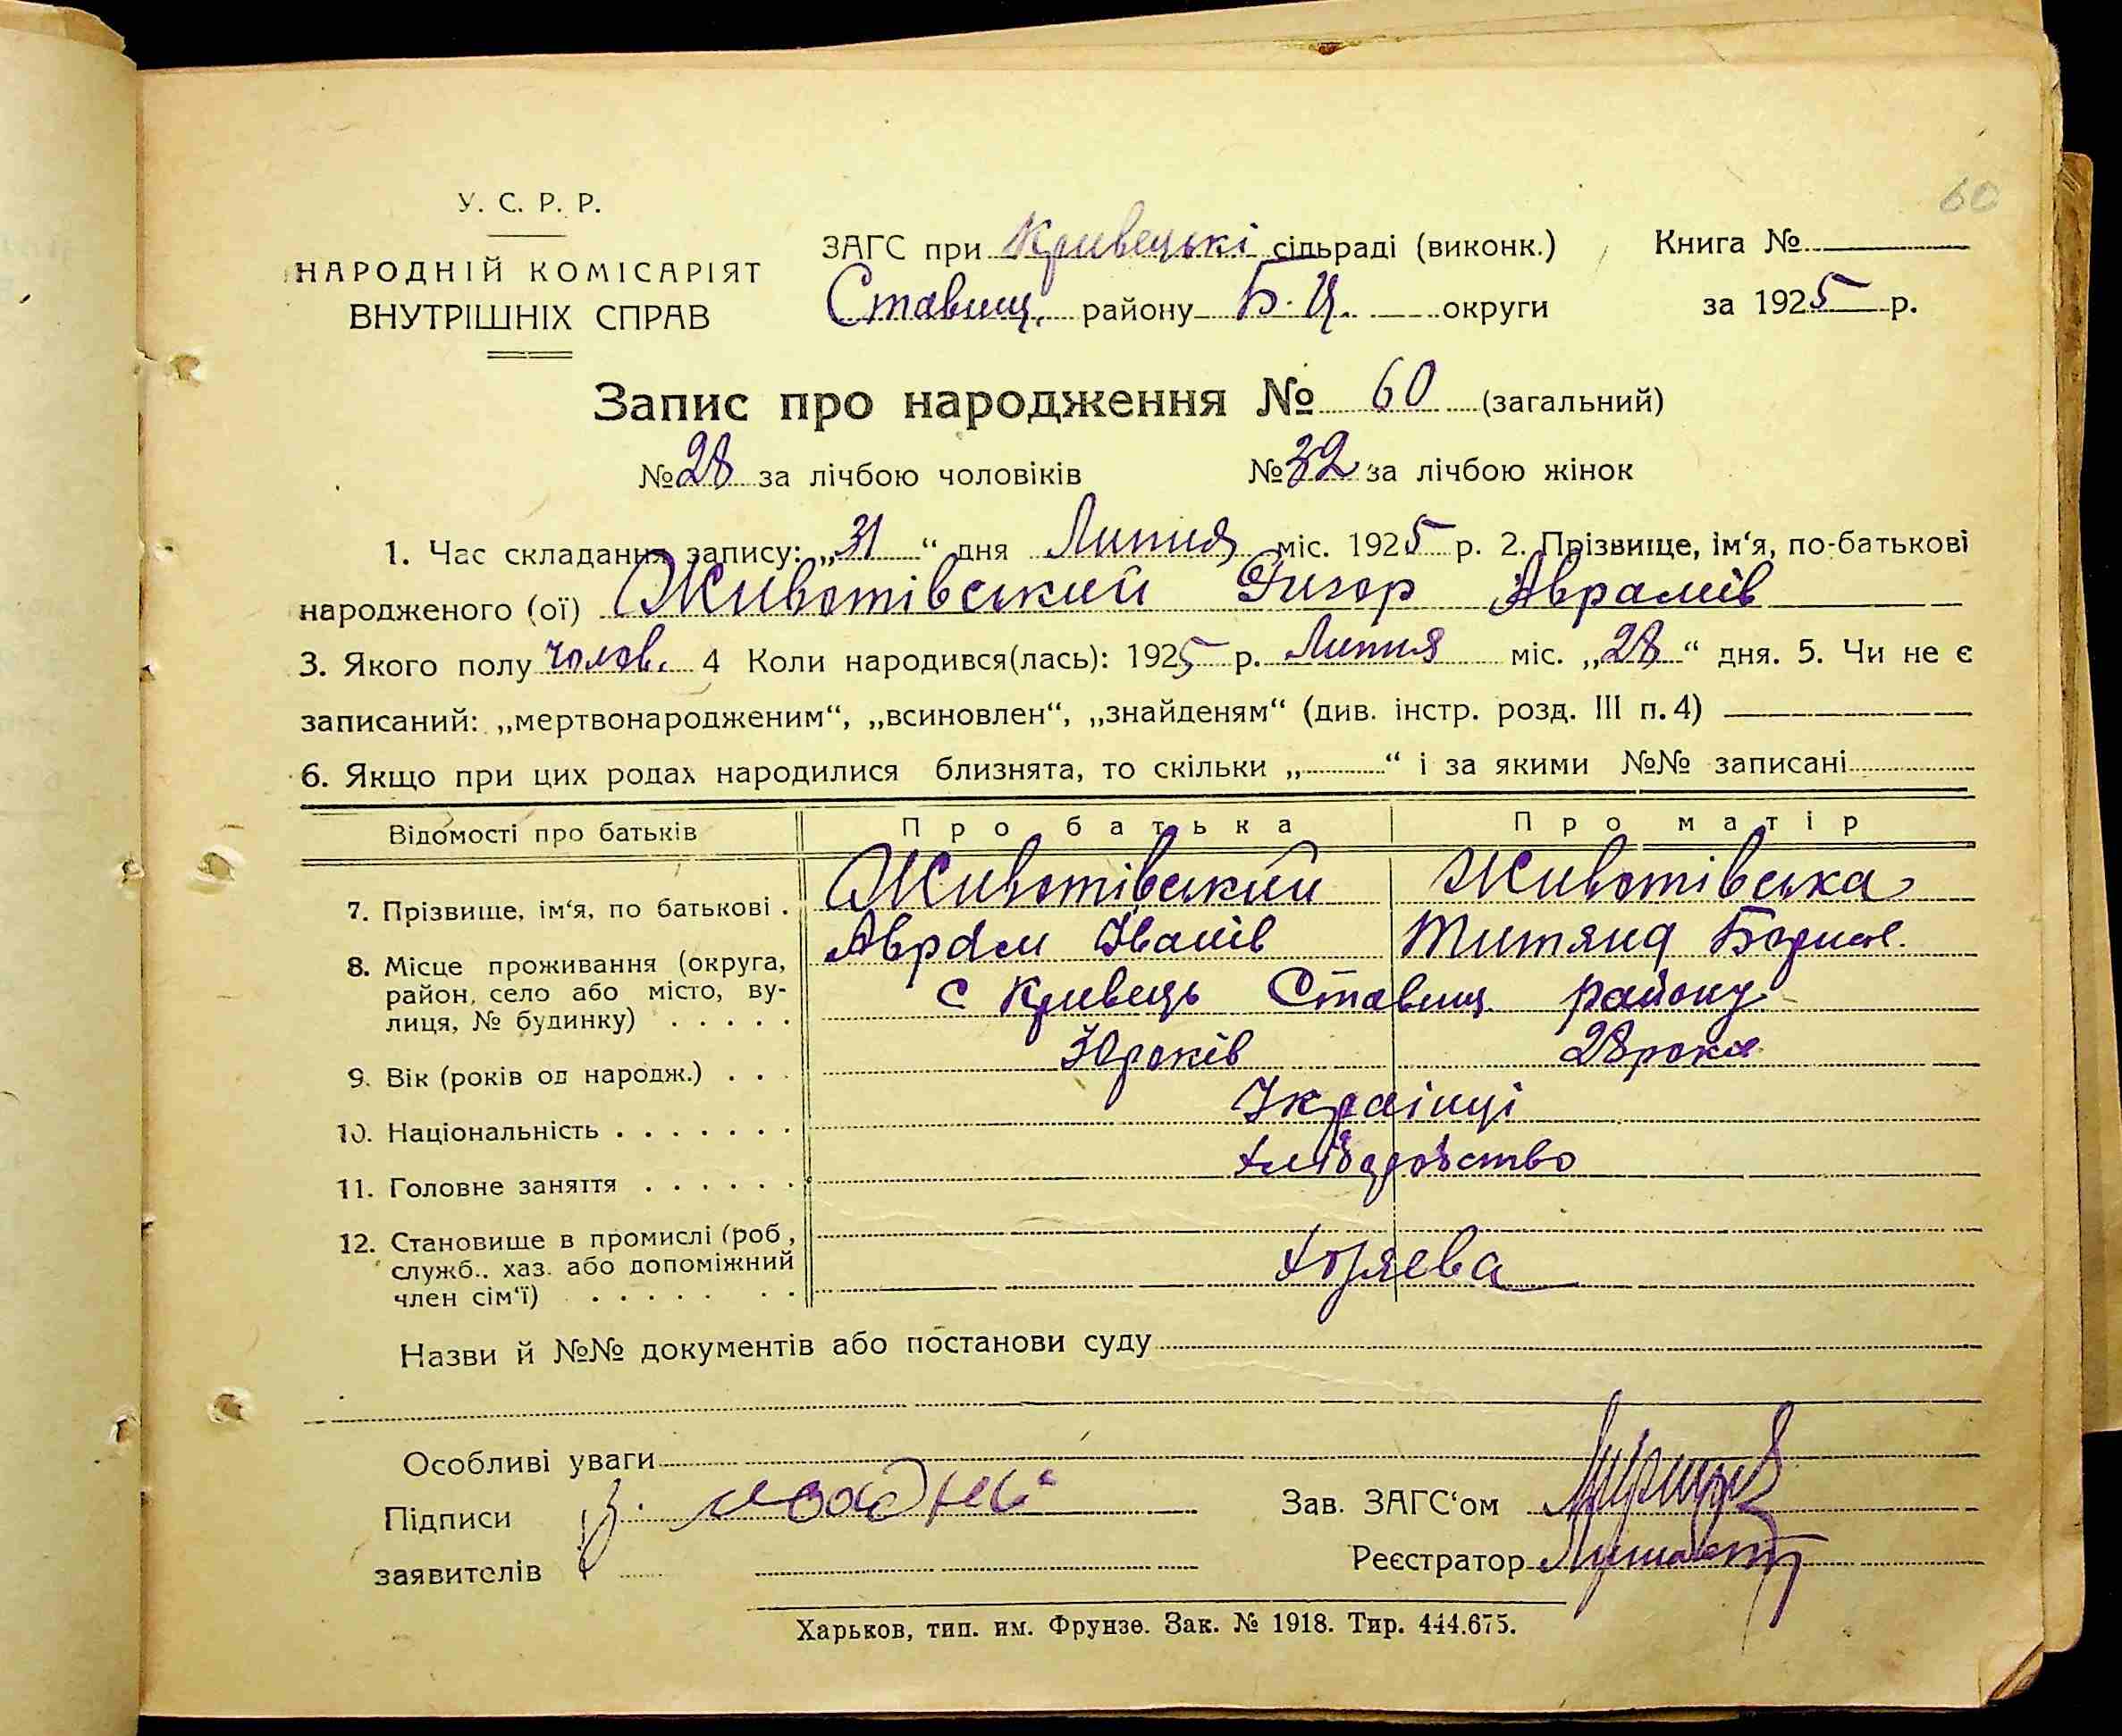 60
У. С. Р. Р.
НАРОДНІЙ КОМІСАРІЯТ
ВНУТРІШНІХ СПРАВ
ЗАГС при Кривецькі сільраді (виконк.)
Ставищ. району Б. Ц. округи
Книга №
за 1925 р.
Запис про народження № 60 (загальний)
№ 28 за лічбою чоловіків № 32 за лічбою жінок
1. Час складання запису: „31“ дня Липня міс. 1925 р. 2. Прізвище, ім‘я, по-батькові
народженого (ої) Животівський Григор Аврамів
3. Якого полу чолов. 4 Коли народився(лась): 1925 р. Липня міс. „28“ дня. 5. Чи не є
записаний: „мертвонародженим“, „всиновлен“, „знайденям“ (див. інстр. розд. III п. 4)
6. Якщо при цих родах народилися близнята, то скільки „ “ і за якими №№ записані
Відомості про батьків Про батька Про матір
7. Прізвище, ім‘я, по батькові . Животівський Животівська
Аврам Іванів Титяна
8. Місце проживання (округа, район, село або місто, ву-
лиця, № будинку) . . . . . с Кривець Ставищ. району
9. Вік (років од народж.) . . . 30 років 28 роки
10. Національність . . . . . . . Українці
11. Головне заняття . . . . . . Хліборобство
12. Становище в промислі (роб.,
служб., хаз. або допоміжний
член сім‘ї) . . . . . . . Хозяева
Назви й №№ документів або постанови суду
Особливі уваги
Підписи
заявителів
Зав. ЗАГС‘ом
Реєстратор
Харьков, тип. им. Фрунзе. Зак. № 1918. Тир. 444.675.